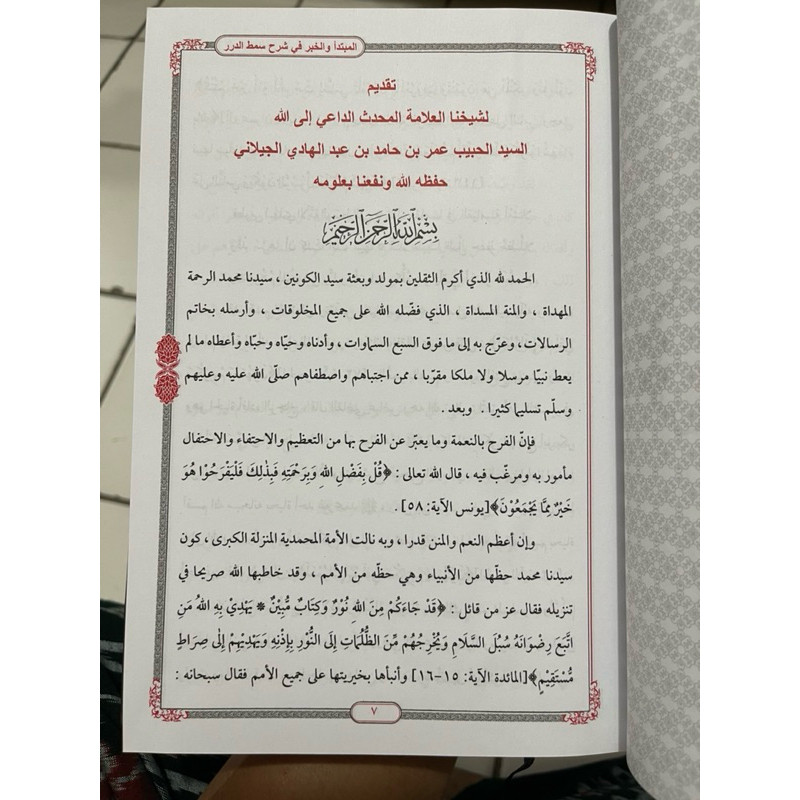 المبتدأ والخبر في شرح سمط الدرر
تقديم
لشيخنا العلامة المحدث الداعي إلى الله
السيد الحبيب عمر بن حامد بن عبد الهادي الجيلاني
حفظه الله ونفعنا بعلومه
بسم الله الرحمن الرحيم
الحمد لله الذي أكرم الثقلين بمولد وبعثة سيد الكونين ، سيدنا محمد الرحمة
المهداة ، والمنة المسداة ، الذي فضّله الله على جميع المخلوقات ، وأرسله بخاتم
الرسالات ، وعرّج به إلى ما فوق السبع السماوات ، وأدناه وحيّاه وحبّاه وأعطاه ما لم
يعط نبيّا مرسلا ولا ملكا مقرّبا ، ممن اجتباهم واصطفاهم صلّى الله عليه وعليهم
وسلّم تسليما كثيرا . وبعد .
فإنّ الفرح بالنعمة وما يعبّر عن الفرح بها من التعظيم والاحتفاء والاحتفال
مأمور به ومرغّب فيه ، قال الله تعالى : ﴿قُلْ بِفَضْلِ اللهِ وَبِرَحْمَتِهِ فَبِذٰلِكَ فَلْيَفْرَحُوْا هُوَ
خَيْرٌ مِمَّا يَجْمَعُوْنَ﴾[يونس الآية: ٥٨] .
وإن أعظم النعم والمنن قدرا ، وبه نالت الأمة المحمدية المنزلة الكبرى ، كون
سيدنا محمد حظّها من الأنبياء وهي حظّه من الأمم ، وقد خاطبها الله صريحا في
تنزيله فقال عز من قائل : ﴿قَدْ جَاءَكُمْ مِنَ اللهِ نُوْرٌ وَكِتَابٌ مُّبِيْنٌ * يَهْدِيْ بِهِ اللهُ مَنِ
اتَّبَعَ رِضْوَانَهُ سُبُلَ السَّلَامِ وَيُخْرِجُهُمْ مِّنَ الظُّلُمَاتِ إِلَى النُّوْرِ بِإِذْنِهِ وَيَهْدِيْهِمْ إِلٰى صِرَاطٍ
مُّسْتَقِيْمٍ﴾[المائدة الآية: ١٥-١٦] وأنبأها بخيريتها على جميع الأمم فقال سبحانه :
٧